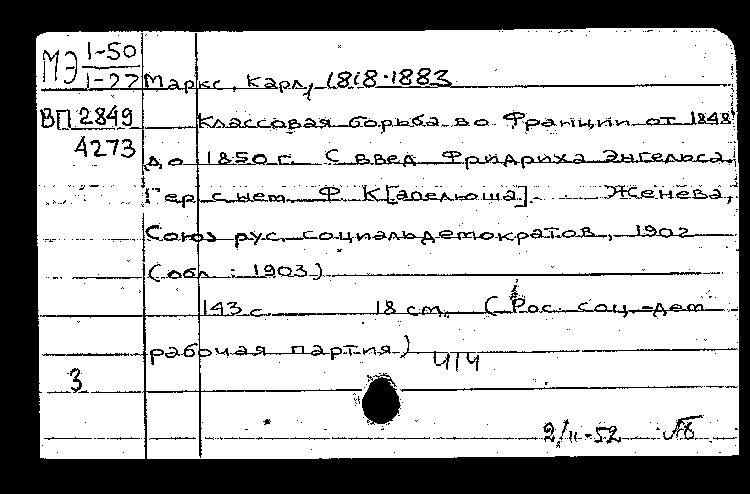 МЭ 1-50
1-27
Маркс, Карл, 1818-1883
ВП 2849
Классовая борьба во Франции от 1848
4273
до 1850 г. С введ. Фридриха Энгельса.
Гер. с нем. Ф. К[апелюша]. Женева,
Союз рус. социальдемократов, 1902
(обл.: 1903)
143 с. 18 см. (Рос. соц.-дем
рабочая партия)
3
2/II-52